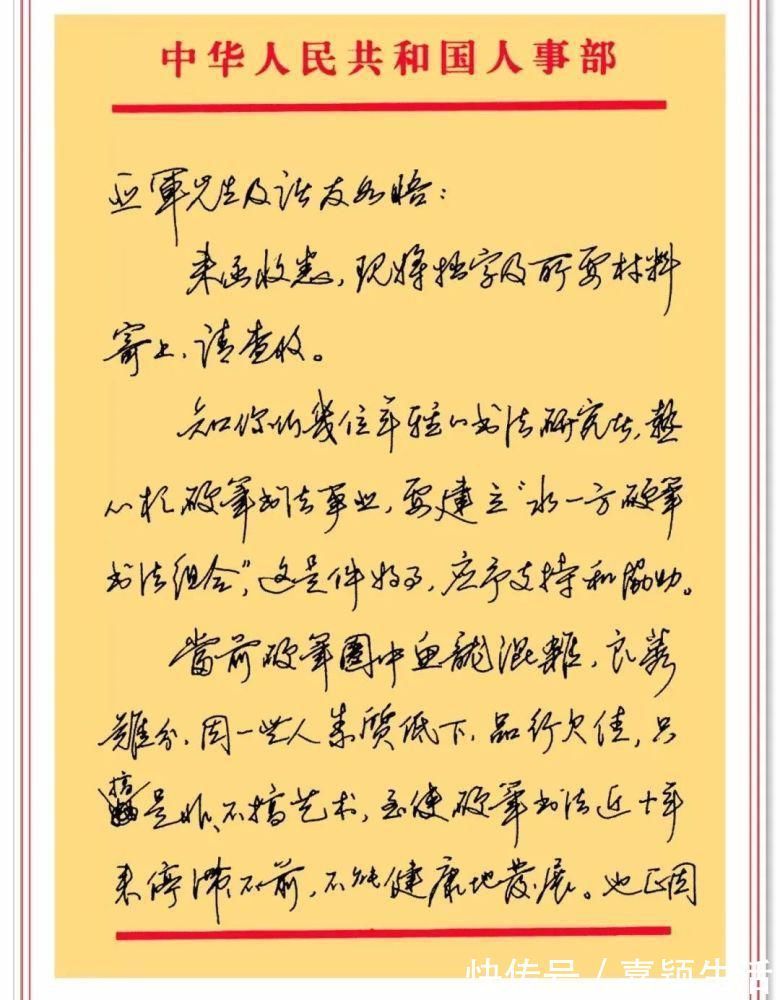 中华人民共和国人事部
亚軍先生及诸友如晤：
来函收悉，现将拙字及所要材料
寄上，请查收。
知你们幾位年轻的书法研究者，熱
心于硬筆书法事业，要建立“水一方硬筆
书法组合”，这是件好事，应予支持和協助。
當前硬筆圈中鱼龍混雜，良莠
難分，因一些人素質低下，品行欠佳，只
搞是非、不搞艺术，至使硬筆书法近十年
来停滞不前，不能健康地發展。也正因
快传号 / 嘉颖生活